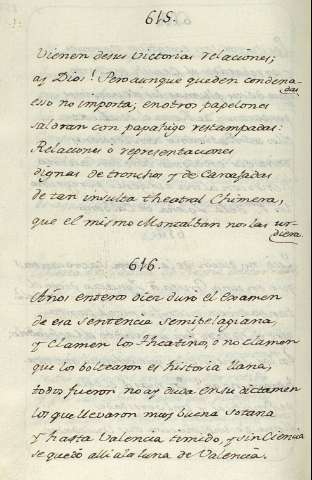 615.
Vienen desus Victorias relaciones;
ay Dios! Pero aunque queden condenadas
esso no importa; enotros papelones
saldran con papahigo restampadas:
Relaciones ò representaciones
dignas de tronchos y de Carcafadas
de tan insulsa theatral Chimera,
que el mismo Montalban no las urdiera.
616.
Años enteros diez durò el examen
de esa sentencia semipelagiana,
y Clamen los Theatinos, ò no clamen
que los bolcearon es historia llana;
todos fueron no ay duda en su dictamen
los que llevaron muy buena sotana
y hasta Valencia timido, y sin Ciencia
se quedò alli à la luna de Valencia.